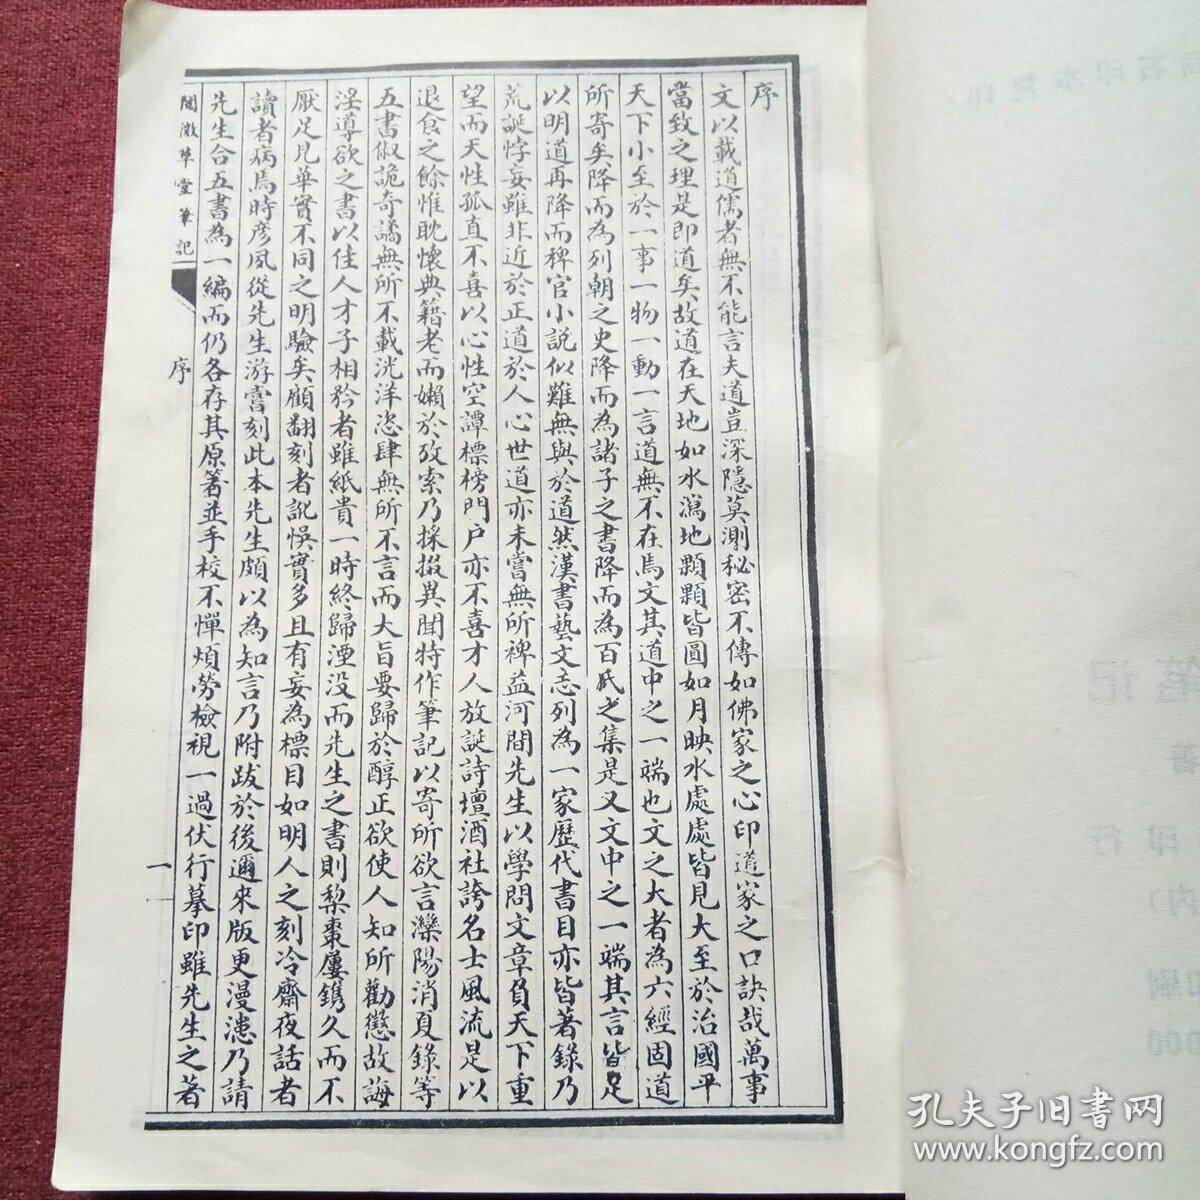 序
文以載道儒者無不能言夫道豈深隱莫測秘密不傳如佛家之心印道家之口訣哉萬事
當致之理是即道矣故道在天地如水瀉地顆顆皆圓如月映水處處皆見大至於治國平
天下小至於一事一物一動一言道無不在焉文其道中之一端也文之大者為六經固道
所寄矣降而為列朝之史降而為諸子之書降而為百氏之集是又文中之一端其言皆足
以明道再降而稗官小說似難無與於道然漢書藝文志列為一家歷代書目亦皆著錄乃
荒誕悖妄雖非近於正道於人心世道亦未嘗無所裨益河間先生以學問文章負天下重
望而天性孤直不喜以心性空譚標榜門户亦不喜才人放誕詩壇酒社誇名士風流是以
退食之餘惟耽懷典籍老而嬾於攷索乃採掇異聞特作筆記以寄所欲言灤陽消夏錄等
五書俶詭奇譎無所不載洸洋恣肆無所不言而大旨要歸於醇正欲使人知所勸懲故誨
淫導欲之書以佳人才子相矜者雖紙貴一時終歸湮没而先生之書則梨棗屢鐫久而不
厭足見華實不同之明驗矣顧翻刻者訛悞實多且有妄為標目如明人之刻冷齋夜話者
讀者病焉時彦夙從先生游嘗刻此本先生頗以為知言乃附跋於後邇來版更漫漶乃請
先生合五書為一編而仍各存其原箸並手校不憚煩勞檢視一過伏行摹印雖先生之著
閱微草堂筆記
序
一
石印本复印
笔记
著
印行
印刷
000
孔夫子旧书网
www.kongfz.com